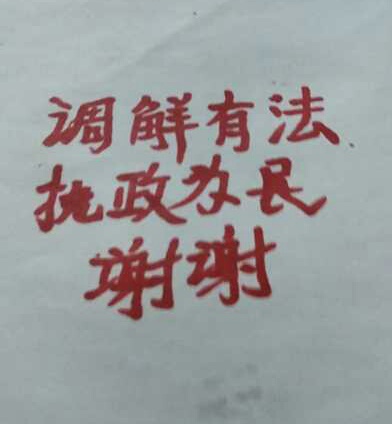 调解有法
执政为民
谢谢